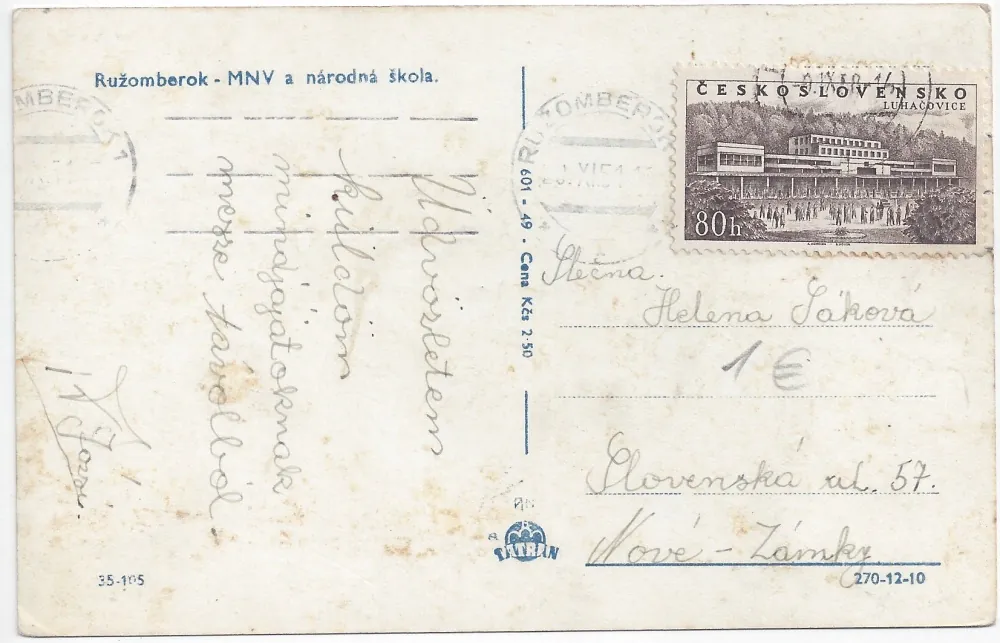 Ružomberok - MNV a národná škola.
Üdvösletem
küldöm
mindjajatoknak
messze távolból.
Józsi.
601 - 49 - Cena Kčs 2·50
ČESKOSLOVENSKO
LUHAČOVICE
80h
RUŽOMBEROK
MBEROK 1
Slečna.
Helena Sáková
1 €
Slovenská ul. 57.
Nové - Zámky
TATRAN
35-105
270-12-10